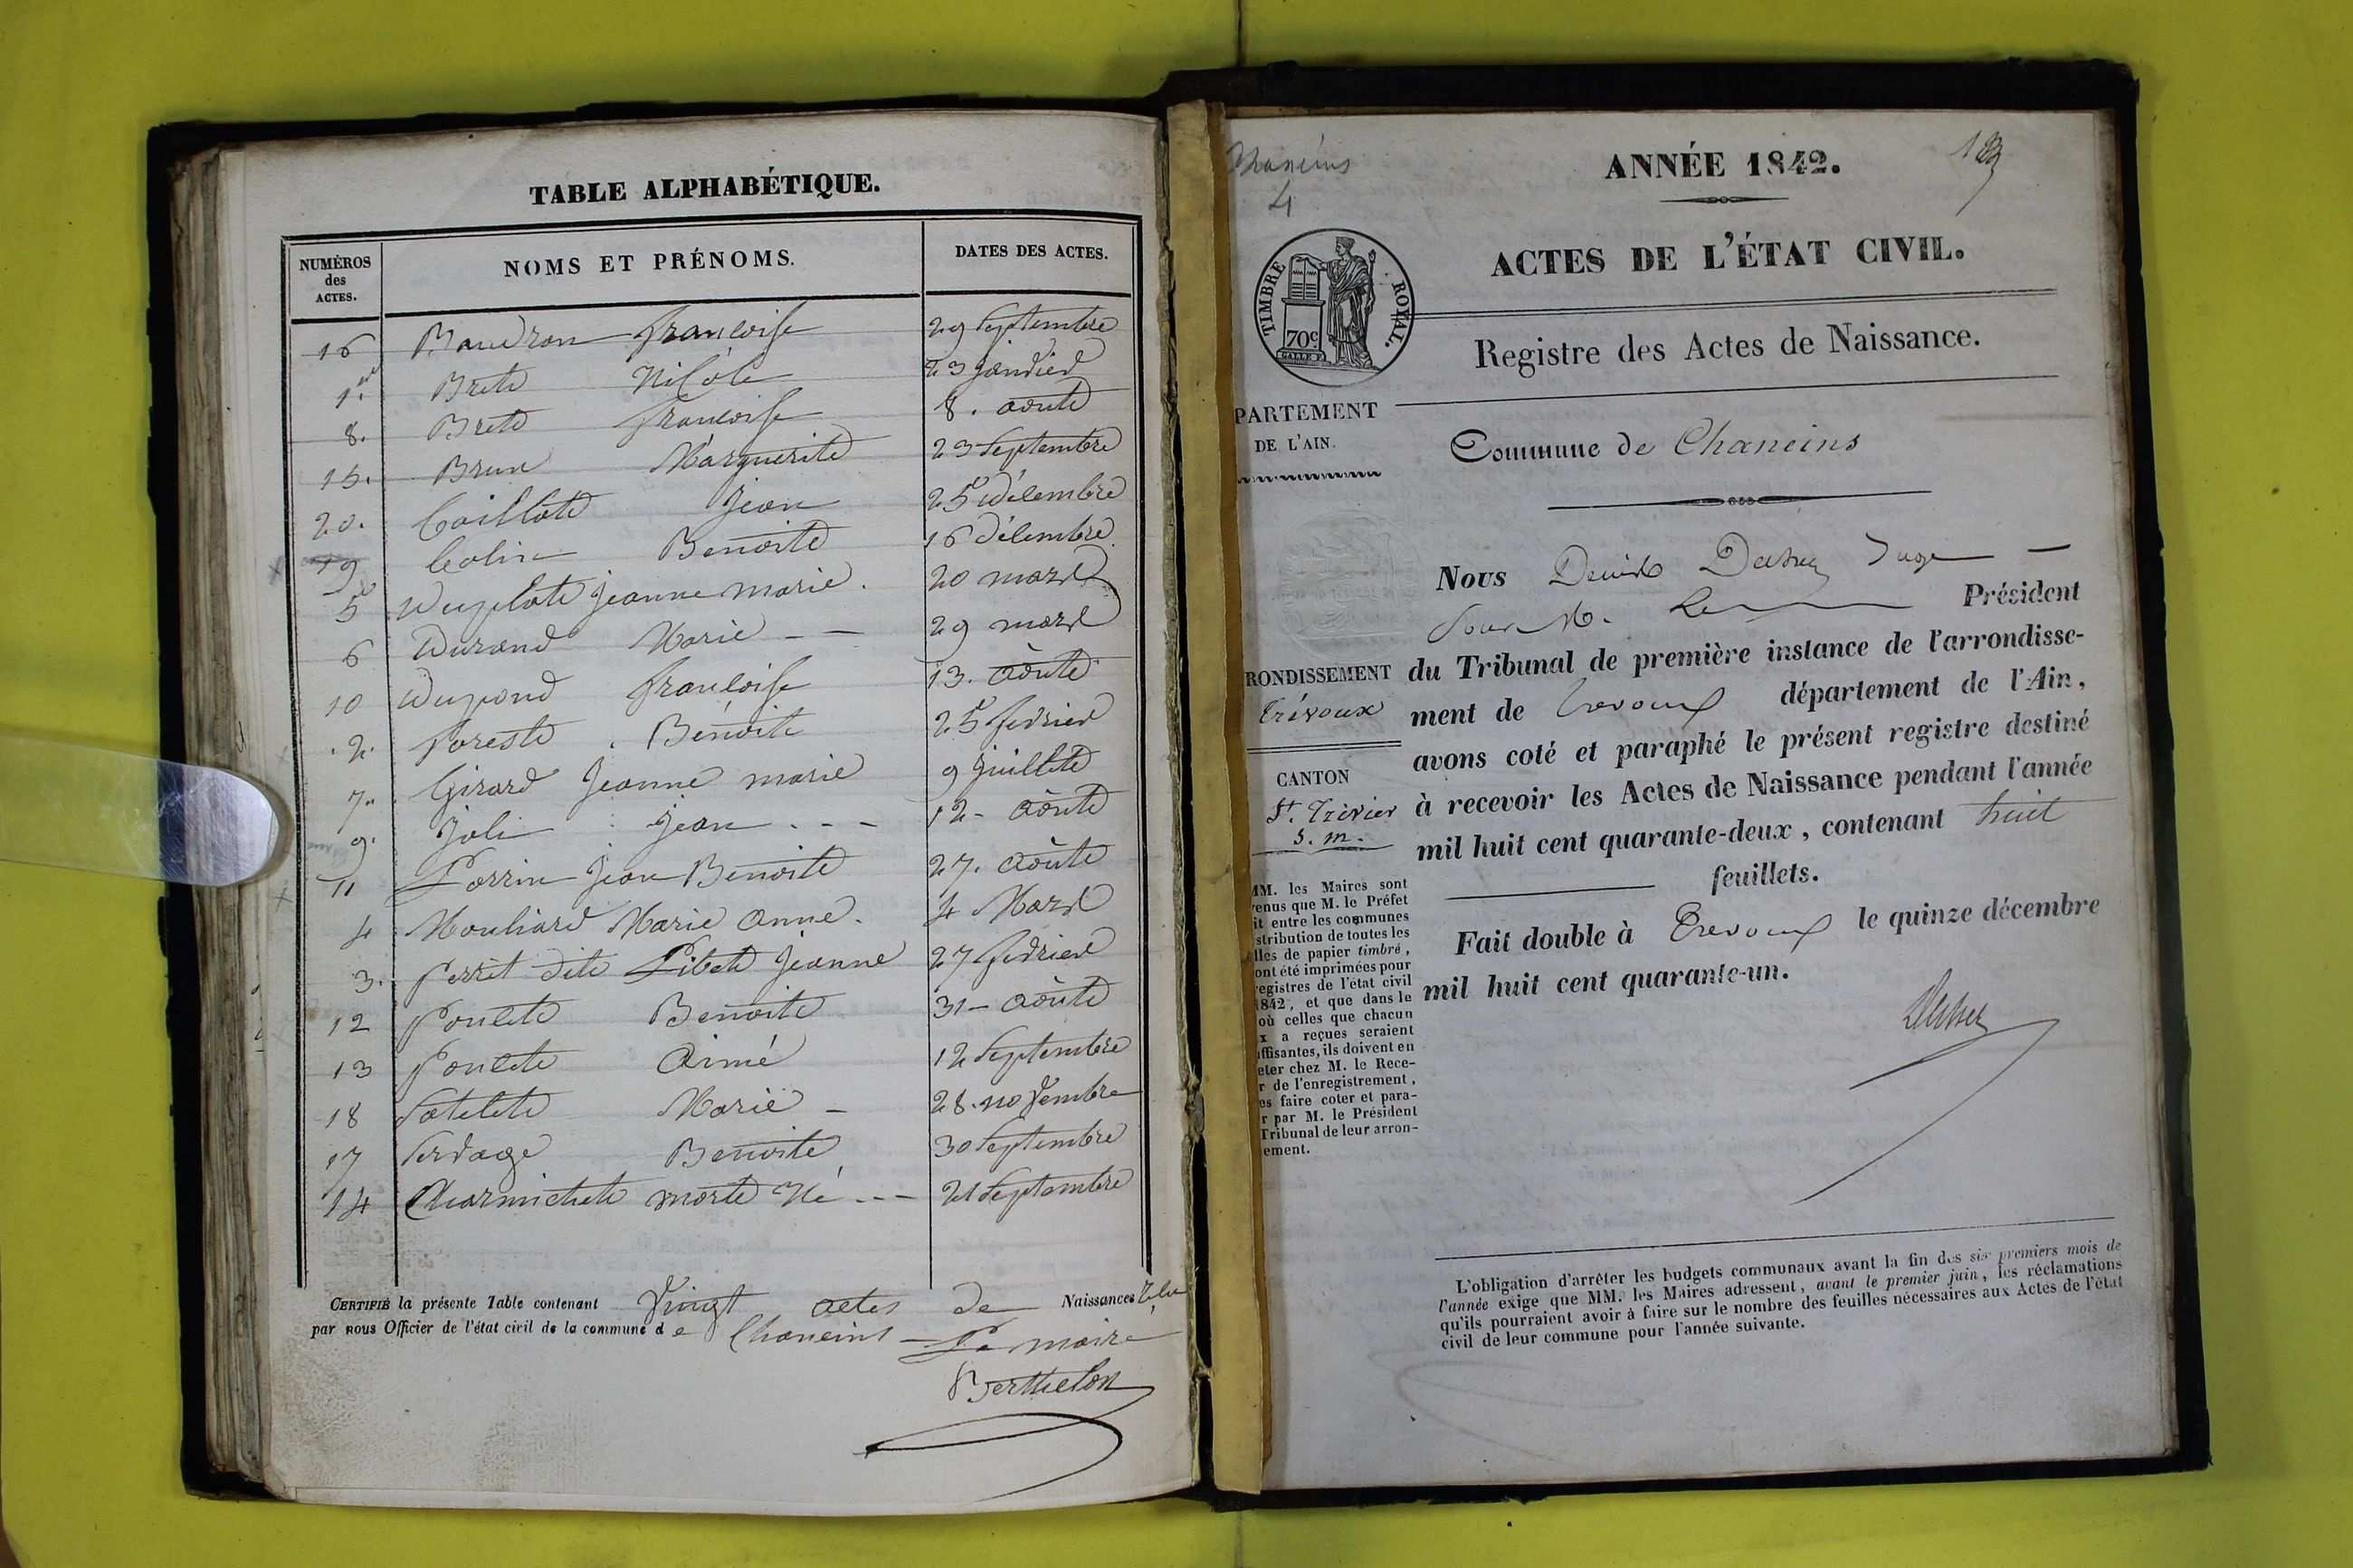 TABLE ALPHABÉTIQUE.
NUMÉROS des ACTES. NOMS ET PRÉNOMS. DATES DES ACTES.
16 Baudron françoise 29 Septembre
1er Brete Nicole 23 janvier
8. Brete françoise 8. aoute
15. Brun Marguerite 23 Septembre
20. Caillote Jean 25 décembre
19 Colin Benoite 16 décembre
5 Duplate Jeanne marie. 20 mars
6 Durand Marie -- 29 mars
10 Dupond françoise 13. aoute
2. foreste Benoite 25 fevrier
7. Girard Jeanne marie 9 juillete
9. Joli jean --- 12- aoute
11 Lorrin Jean Benoite 27. aoute
4 Mouliard Marie anne. 4 Mars
3. perret dite Libete Jeanne 27 fevrier
12 poulete Benoite 31- aoute
13 poulete aimé 12 Septembre
18 Satelete Marie - 28. novembre
17 Servage Benoite 30 Septembre
14 Charmichete morte né --- 21 Septembre
CERTIFIÉ la présente Table contenant Vingt actes de Naissances
par nous Officier de l'état civil de la commune de Chaneins Le maire
Berthelon
Chaneins
4
ANNÉE 1842.
ACTES DE L'ÉTAT CIVIL.
TIMBRE ROYAL.
70c
Registre des Actes de Naissance.
PARTEMENT
DE L'AIN.
Commune de Chaneins
Nous Juge —
Pour M. Le Président
du Tribunal de première instance de l'arrondisse-
ment de Trevoux département de l'Ain,
avons coté et paraphé le présent registre destiné
à recevoir les Actes de Naissance pendant l'année
mil huit cent quarante-deux, contenant huit
feuillets.
Fait double à Trevoux le quinze décembre
mil huit cent quarante-un.
RONDISSEMENT
Trévoux
CANTON
St. Trivier
S. m.
MM. les Maires sont
venus que M. le Préfet
it entre les communes
stribution de toutes les
lles de papier timbré,
ont été imprimées pour
egistres de l'état civil
1842, et que dans le
où celles que chacun
x a reçues seraient
ffisantes, ils doivent en
eter chez M. le Rece-
r de l'enregistrement,
es faire coter et para-
r par M. le Président
Tribunal de leur arron-
ement.
L'obligation d'arrêter les budgets communaux avant la fin des six premiers mois de
l'année exige que MM. les Maires adressent, avant le premier juin, les réclamations
qu'ils pourraient avoir à faire sur le nombre des feuilles nécessaires aux Actes de l'état
civil de leur commune pour l'année suivante.